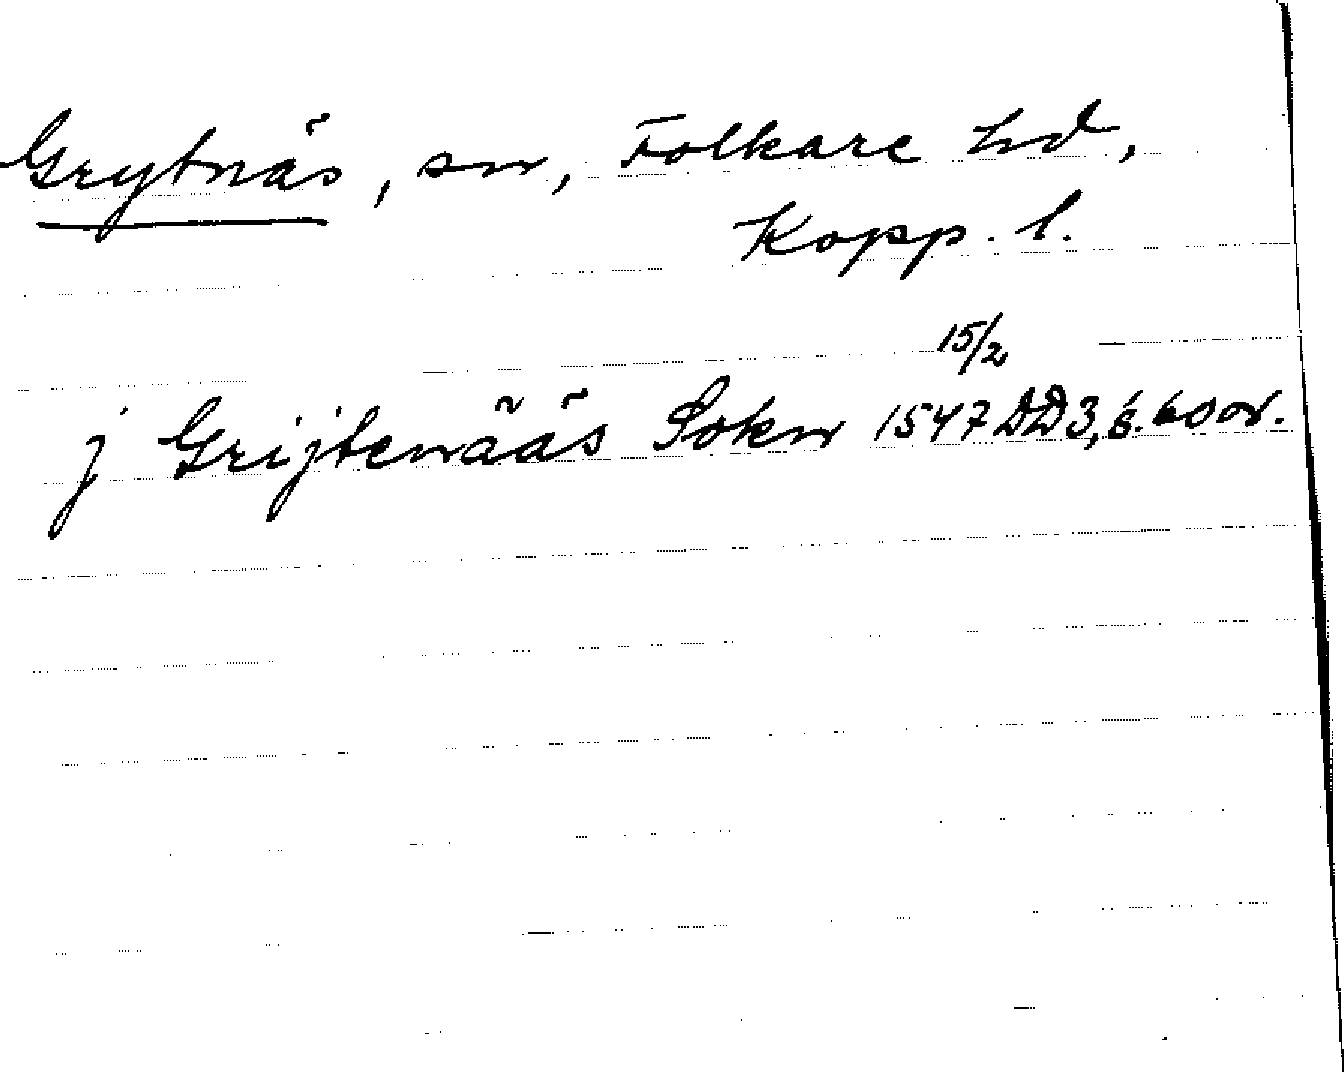 Grytnäs, sn, Folkare hd,
Kopp. l.
15/2
j Grijtenääs Sokn 1547 DD3, 6. or.